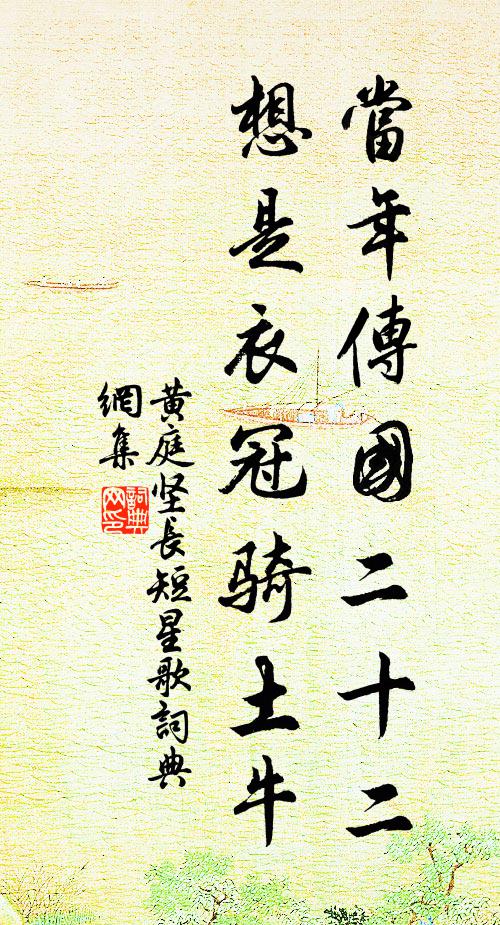 當年傳國二十二
想是衣冠骑土牛
黄庭坚長短星歌詞典
網集
詞典
网印